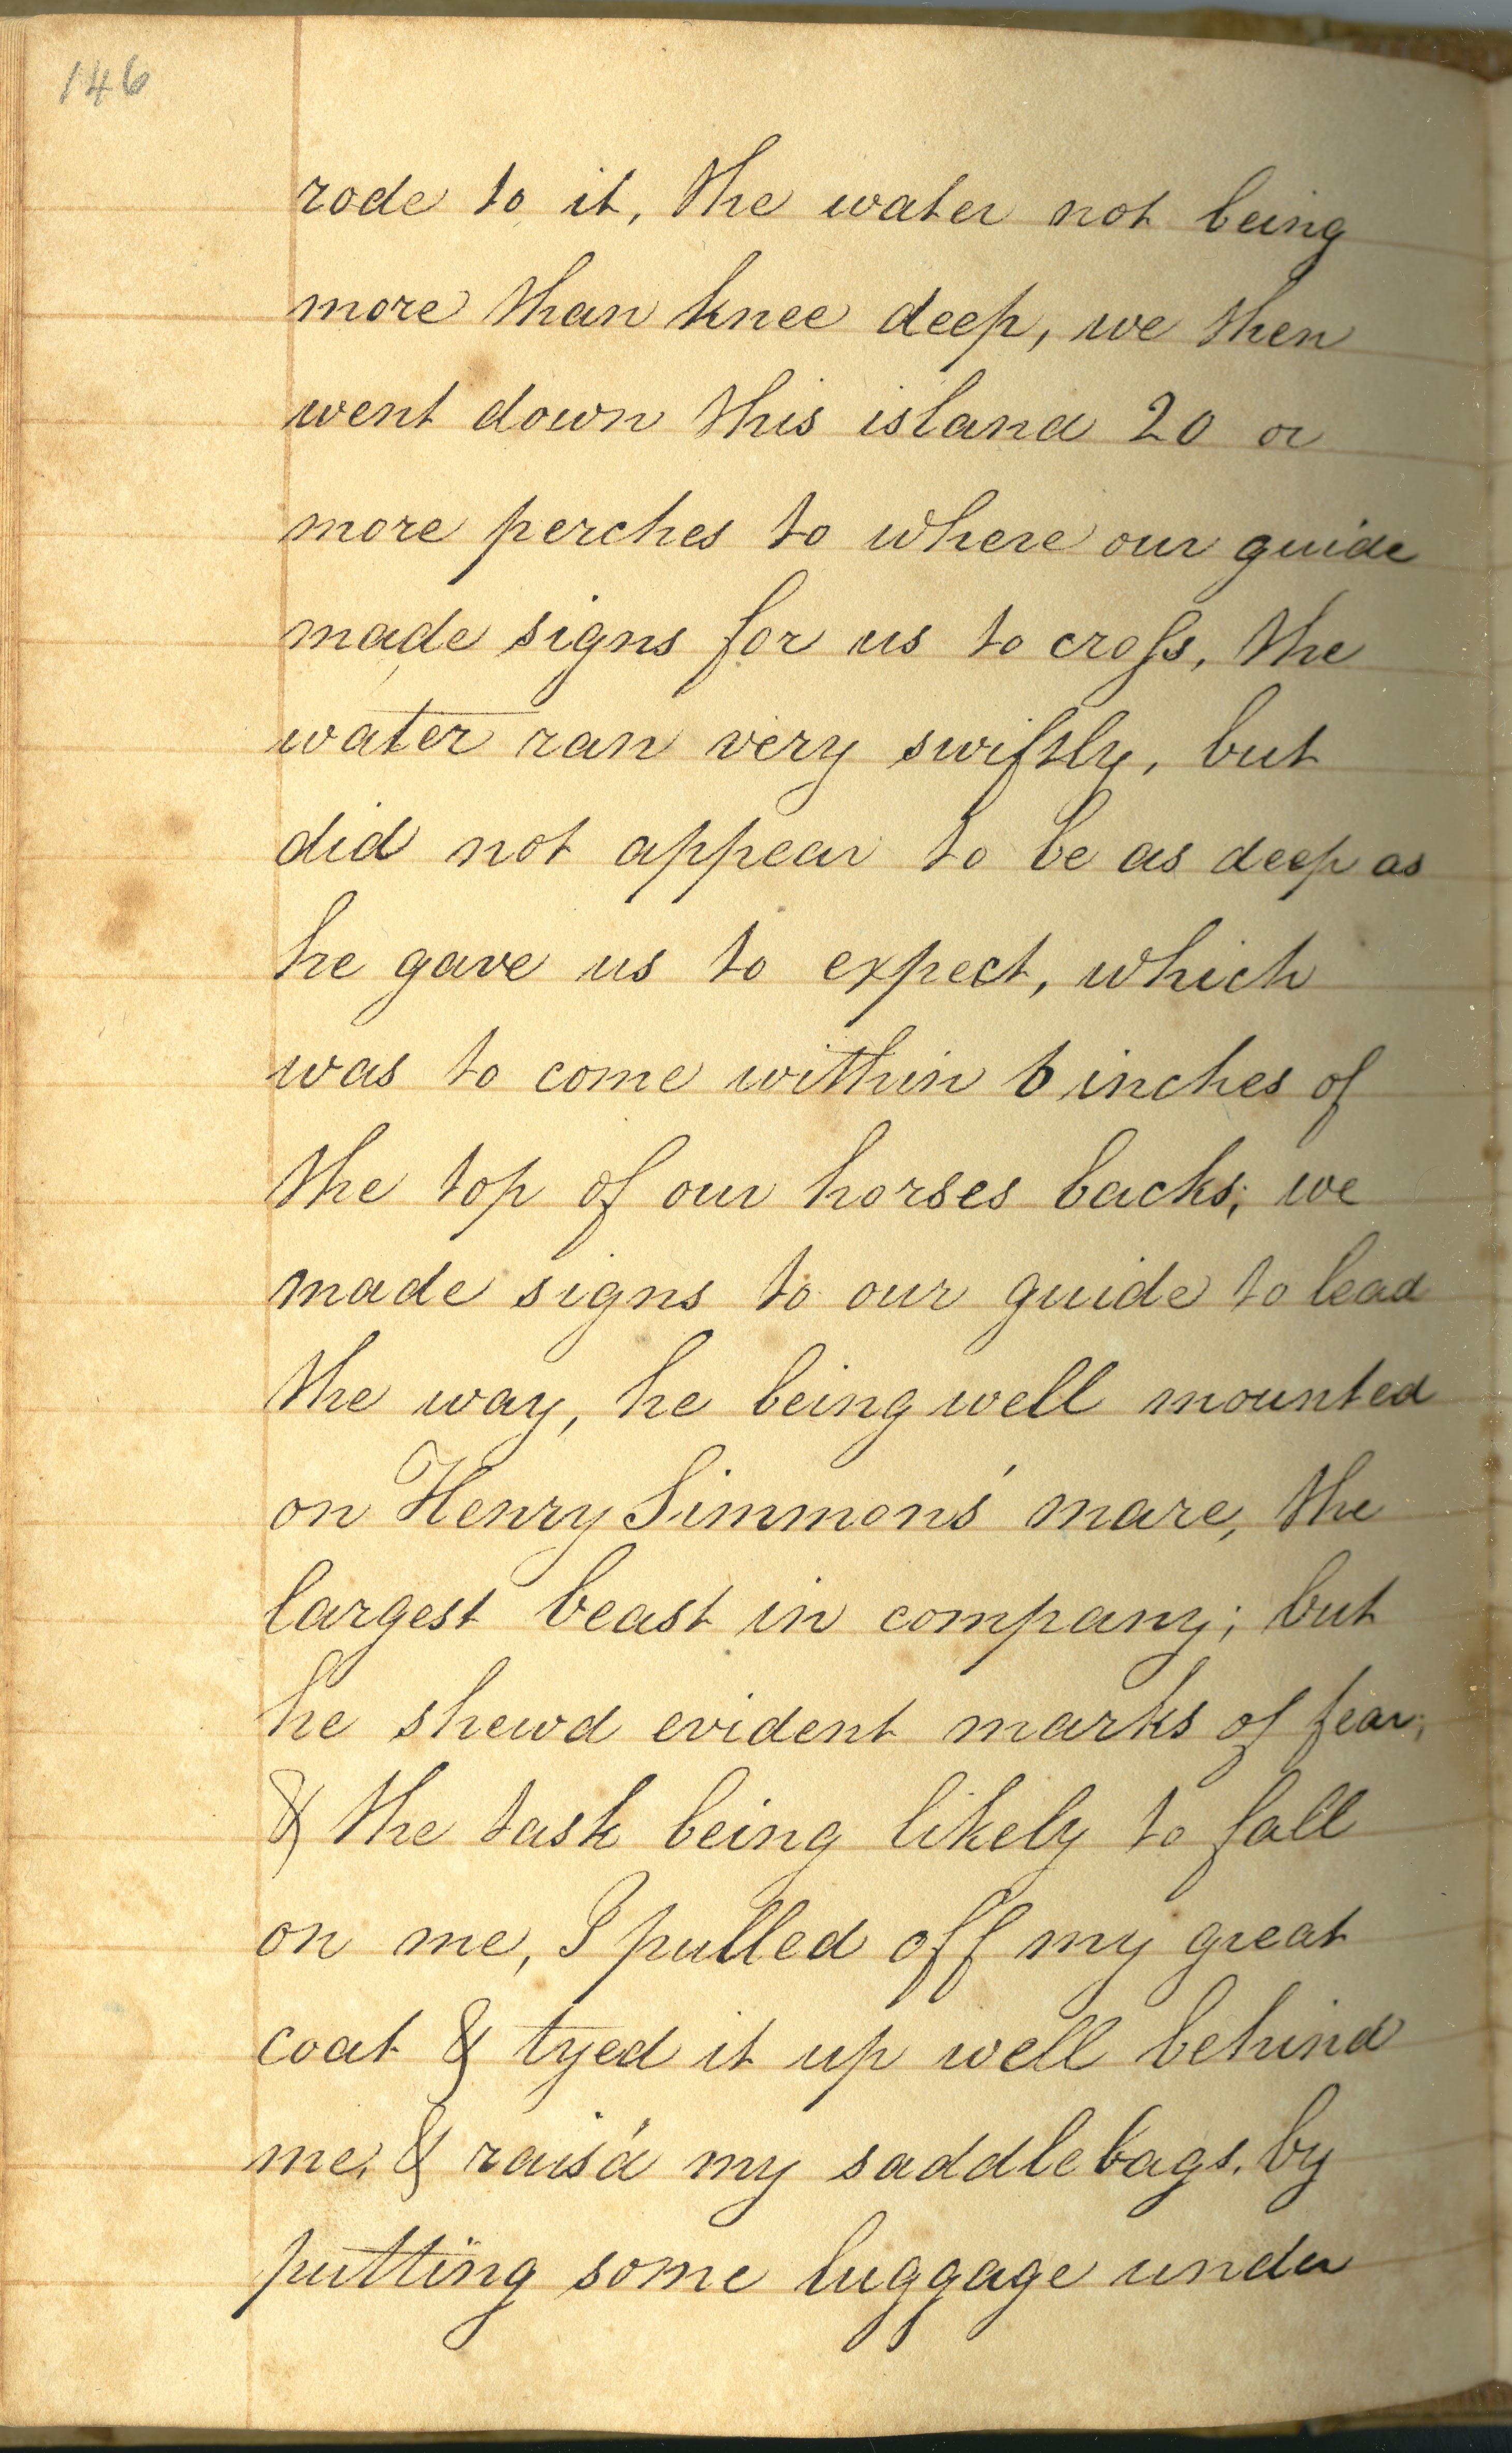 146
rode to it, the water not being
more than knee deep, we then
went down this island 20 or
more perches to where our guide
made signs for us to croſs, the
water ran very swiftly, but
did not appear to be as deep as
he gave us to expect, which
was to come within 6 inches of
the top of our horses backs; we
made signs to our guide to lead
the way, he being well mounted
on Henry Simmons' mare, the
largest beast in company; but
he shewd evident marks of fear;
& the task being likely to fall
on me, I pulled off my great
coat & tyed it up well behind
me, & rais'd my saddlebags, by
putting some luggage under